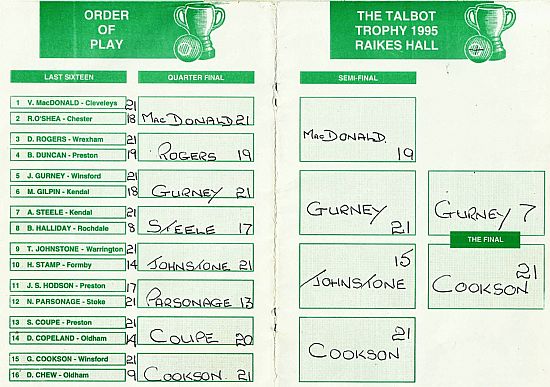 ORDER
OF
PLAY
LAST SIXTEEN
QUARTER FINAL
1 V. MacDONALD - Cleveleys 21
2 R.O'SHEA - Chester 18
MacDONALD 21
3 D. ROGERS - Wrexham 21
4 B. DUNCAN - Preston 19
ROGERS 19
5 J. GURNEY - Winsford 21
6 M. GILPIN - Kendal 18
GURNEY 21
7 A. STEELE - Kendal 21
8 B. HALLIDAY - Rochdale 8
STEELE 17
9 T. JOHNSTONE - Warrington 21
10 H. STAMP - Formby 14
JOHNSTONE 21
11 J. S. HODSON - Preston 17
12 N. PARSONAGE - Stoke 21
PARSONAGE 13
13 S. COUPE - Preston 21
14 D. COPELAND - Oldham 14
COUPE 20
15 G. COOKSON - Winsford 21
16 D. CHEW - Oldham 9
COOKSON 21
THE TALBOT
TROPHY 1995
RAIKES HALL
SEMI-FINAL
MacDONALD
19
GURNEY
21
15
JOHNSTONE
21
COOKSON
GURNEY 7
THE FINAL
21
COOKSON